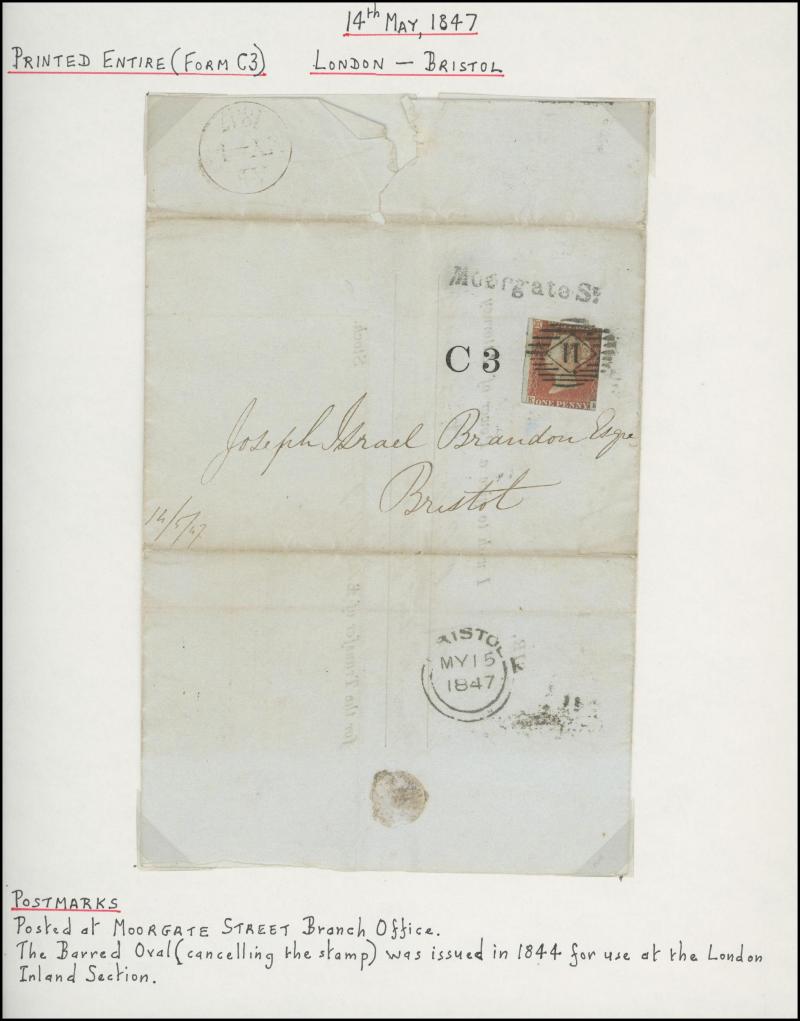 14th May, 1847
Printed Entire (Form C3) London — Bristol
1847
Moorgate St
C 3
11
ONE PENNY
Joseph Israel Brandon Esqre
Bristol
14/5/47
Stock.
for the Transfer of £
BRISTOL
MY 15
1847
Postmarks
Posted at Moorgate Street Branch Office.
The Barred Oval (cancelling the stamp) was issued in 1844 for use at the London
Inland Section.